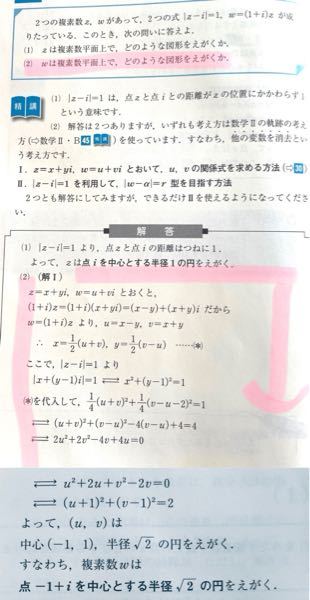 2つの複素数z, wがあって, 2つの式|z−i|=1, w=(1+i)zが成
りたっている. このとき, 次の問いに答えよ.
(1) zは複素数平面上で, どのような図形をえがくか.
(2) wは複素数平面上で, どのような図形をえがくか.
精講
(1) |z−i|=1 は, 点zと点iとの距離がzの位置にかかわらず1
という意味です.
(2) 解答は2つありますが, いずれも考え方は数学Ⅱの軌跡の考え
方(⇨数学Ⅱ・B45)を使っています. すなわち, 他の変数を消去と
いう考え方です.
Ⅰ. z=x+yi, w=u+vi とおいて, u, vの関係式を求める方法(⇨30)
Ⅱ. |z−i|=1 を利用して, |w−α|=r 型を目指す方法
2つとも解答にしてみますが, できるだけⅡを使えるようになってくださ
い.
解答
(1) |z−i|=1 より, 点zと点iの距離はつねに1.
よって, zは点iを中心とする半径1の円をえがく.
(2) (解Ⅰ)
z=x+yi, w=u+vi とおくと,
(1+i)z=(1+i)(x+yi)=(x−y)+(x+y)i だから
w=(1+i)z より, u=x−y, v=x+y
∴ x=1/2(u+v), y=1/2(v−u) ……(*)
ここで, |z−i|=1 より
|x+(y−1)i|=1 ⟺ x²+(y−1)²=1
(*)を代入して, 1/4(u+v)²+1/4(v−u−2)²=1
⟺ (u+v)²+(v−u)²−4(v−u)+4=4
⟺ 2u²+2v²−4v+4u=0
⟺ u²+2u+v²−2v=0
⟺ (u+1)²+(v−1)²=2
よって, (u, v)は
中心(−1, 1), 半径√2 の円をえがく.
すなわち, 複素数wは
点 −1+i を中心とする半径√2 の円をえがく.